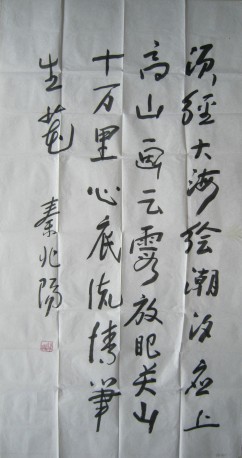 须经大海绘潮汐应上
高山画云霞放眼关山
十万里心底流情笔
生花
秦兆阳